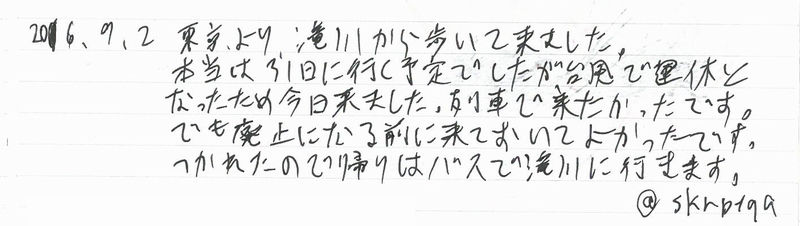 2016.9.2 東京より、滝川から歩いて来ました。
本当は31日に行く予定でしたが台風で運休と
なったため今日来ました。列車で来たかったです。
でも廃止になる前に来ておいてよかったです。
つかれたので帰りはバスで滝川に行きます。